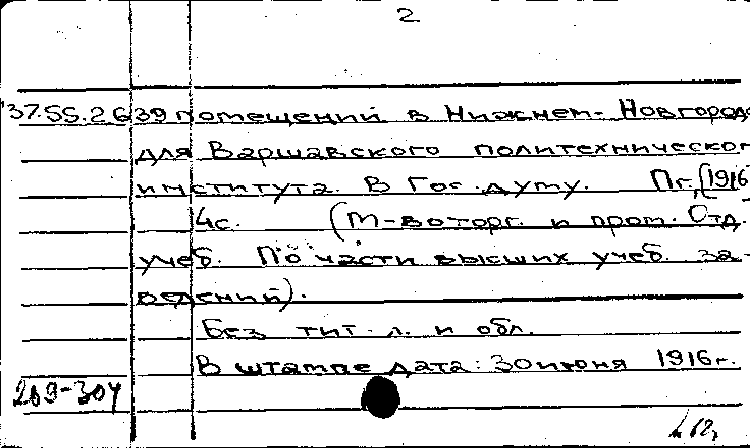 2
37.55.2639 помещений в Нижнем-Новгород
для Варшавского политехническог
института. В Гос. думу. Пг., [1916
4с. (М-во торг. и пром. Отд.
учеб. По части высших учеб. за-
ведений).
Без тит. л. и обл.
В штампе дата: 30 июня 1916г.
269-304